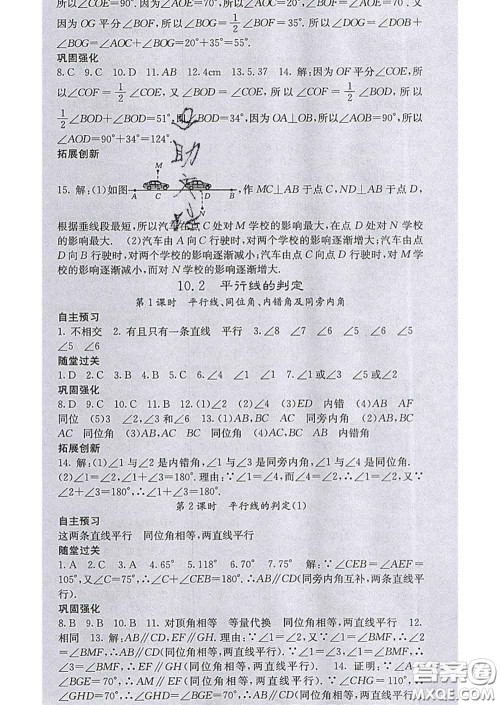 所以∠COE=90°. 因为∠AOE=70°,所以∠AOC=20°,∠BOF=∠AOE=70°. 又
因为 OG 平分∠BOF,所以∠BOG=1/2∠BOF=35°,所以∠DOG=∠DOB+
∠BOG=∠AOC+∠BOG=20°+35°=55°.
巩固强化
8. C 9. C 10. D 11. AB 12. 4cm 13. 5.37 14. 解:因为 OF 平分∠COE,所
以∠COF=1/2∠COE,又∠BOF=∠BOD+∠DOF,所以∠BOF=
1/2∠BOD+∠BOD=51°,则∠BOD=34°,因为 OA⊥OB,所以∠AOB=90°,所
以∠AOD=90°+34°=124°.
拓展创新
M
15. 解:(1)如图 ,作 MC⊥AB 于点 C,ND⊥AB 于点 D,
A C D B
N
根据垂线段最短,所以汽车在点 C 处对 M 学校的影响最大,在点 D 处对 N 学校
的影响最大. (2)汽车由 A 向 C 行驶时,对两个学校的影响逐渐增大;汽车由点
D 向 B 行驶时,对两个学校的影响逐渐减小;汽车由点 C 向点 D 行驶时,对 M 学
校的影响逐渐减小,而对 N 学校的影响逐渐增大.
10.2 平行线的判定
第 1 课时 平行线、同位角、内错角及同旁内角
自主预习
1. 不相交 2. 有且只有一条直线 平行 3. ∠8 ∠7 ∠5 ∠6 ∠5 ∠6
∠5 ∠6
随堂过关
1. D 2. C 3. B 4. B 5. C 6. ∠4 ∠1 7. ∠1 或∠3 ∠5 或∠2
巩固强化
8. D 9. C 10. C 11. B 12. (1)∠2 (2)∠4 (3)ED 内错 (4)AB AF
同位 (5)3 ∠2,∠3 和∠6 13. (1)AB,BC AC 同旁内角 (2)AB,BC
AC 同位角 (3)AB,AC BC 同位角 (4)AC,BC AB 内错角
拓展创新
14. 解:(1)∠1 与∠2 是内错角,∠1 与∠3 是同旁内角,∠1 与∠4 是同位角.
(2)∠1=∠2,∠1+∠3=180°. 理由:∵∠1=∠4,而∠4=∠2,∴∠1=∠2,∵
∠2+∠3=180°,∴∠1+∠3=180°.
第 2 课时 平行线的判定(1)
自主预习
这两条直线平行 同位角相等,两直线平行
随堂过关
1. A 2. C 3. A 4. 65° 5. 118° 6. 70° 7. 75° 解:∵∠CEB=∠AEF=
105°,又∠C=75°,∴∠C+∠CEB=180°,∴AB∥CD(同旁内角互补,两条直线
平行).
巩固强化
8. B 9. D 10. B 11. 对顶角相等 等量代换 同位角相等,两直线平行 12.
相同 13. 解:AB∥CD,EF∥GH. 理由:∵∠1=∠2,∠1=∠BMF,∴∠2
=∠BMF,∴AB∥CD(同位角相等,两直线平行). ∵∠1=∠3,∠1=∠BMF,∴
∠3=∠BMF,∴EF∥GH(同位角相等,两直线平行) 14. 证明:∵∠1=∠A
∠BGE=70°,∴AM∥EF(同位角相等,两直线平行). ∵∠CHG=110°,∴
∠GHD=70°,∴∠BGE=∠GHD=70°,∴AB∥CD(同位角相等,两直线平行
MXQE.COM